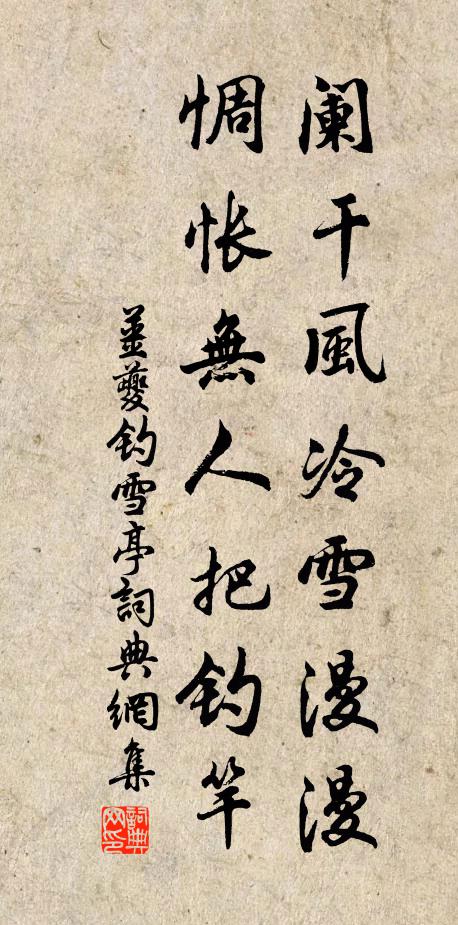 阑干風冷雪漫漫
惆怅無人把钓竿
姜夔钓雪亭詞典網集
詞典网印